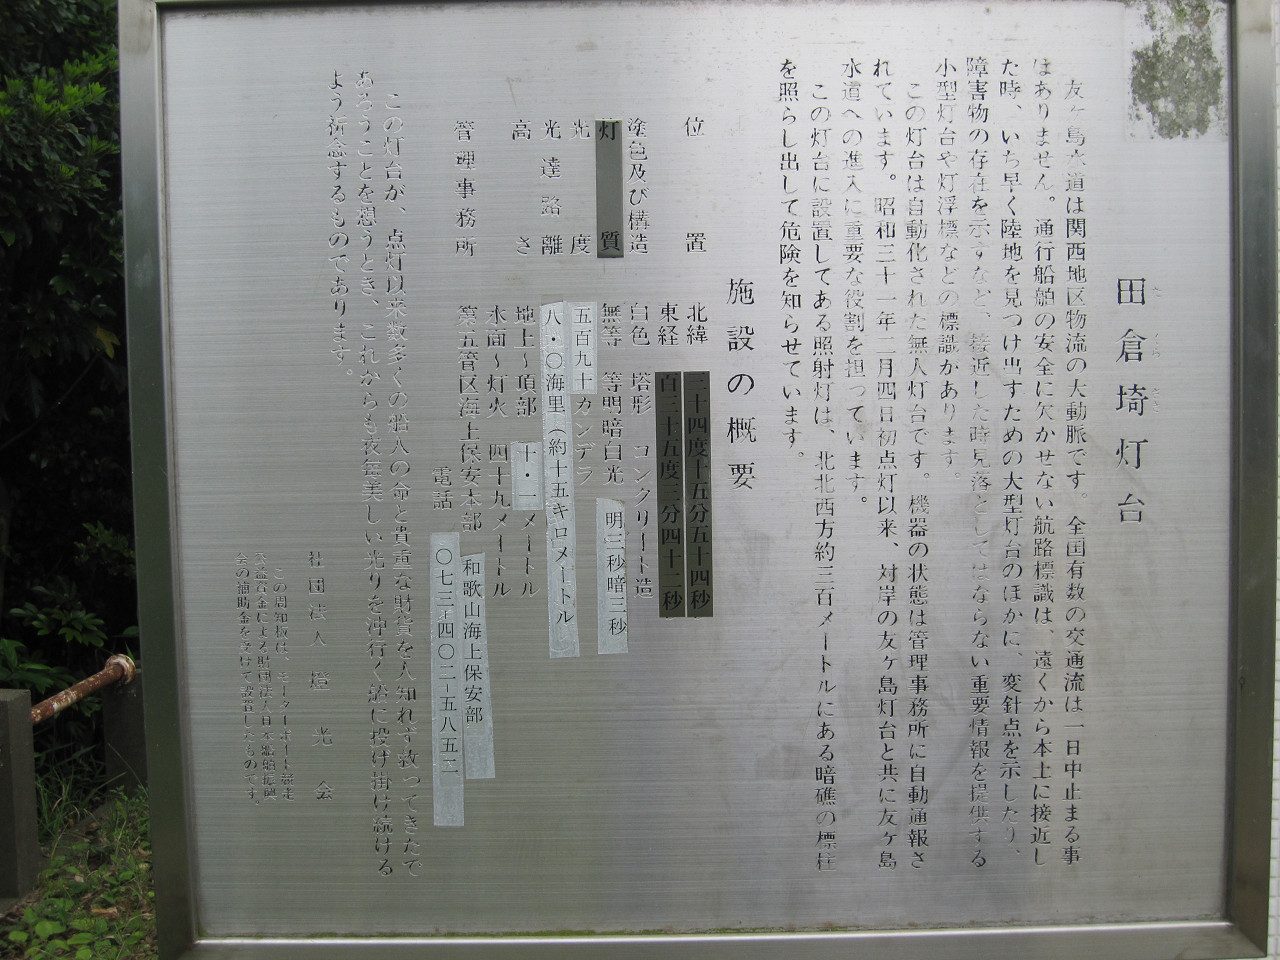 田倉埼灯台
友ヶ島水道は関西地区物流の大動脈です。全国有数の交通流は一日中止まる事
はありません。通行船舶の安全に欠かせない航路標識は、遠くから本土に接近し
た時、いち早く陸地を見つけ出すための大型灯台のほかに、変針点を示したり、
障害物の存在を示すなど、接近した時見落としてはならない重要情報を提供する
小型灯台や灯浮標などの標識があります。
この灯台は自動化された無人灯台です。機器の状態は管理事務所に自動通報さ
れています。昭和三十一年二月四日初点灯以来、対岸の友ヶ島灯台と共に友ヶ島
水道への進入に重要な役割を担っています。
この灯台に設置してある照射灯は、北北西方約三百メートルにある暗礁の標柱
を照らし出して危険を知らせています。
施設の概要
位置 北緯 三十四度十五分五十四秒
東経 百三十五度三分四十二秒
塗色及び構造 白色 塔形 コンクリート造
灯質 無等 等明暗白光 明三秒暗三秒
光度 五百九十カンデラ
光達距離 八・〇海里(約十五キロメートル)
高さ 地上~頂部 十・一メートル
水面~灯火 四十九メートル
管理事務所 第五管区海上保安本部 和歌山海上保安部
電話 〇七三-四〇二-五八五二
この灯台が、点灯以来数多くの船人の命と貴重な財貨を人知れず救ってきたで
あろうことを想うとき、これからも夜毎美しい光りを沖行く船に投げ掛け続ける
よう祈念するものであります。
社団法人 燈光会
この周知板は、モーターボート競走
公益資金による財団法人日本船舶振興
会の補助金を受けて設置したものです。